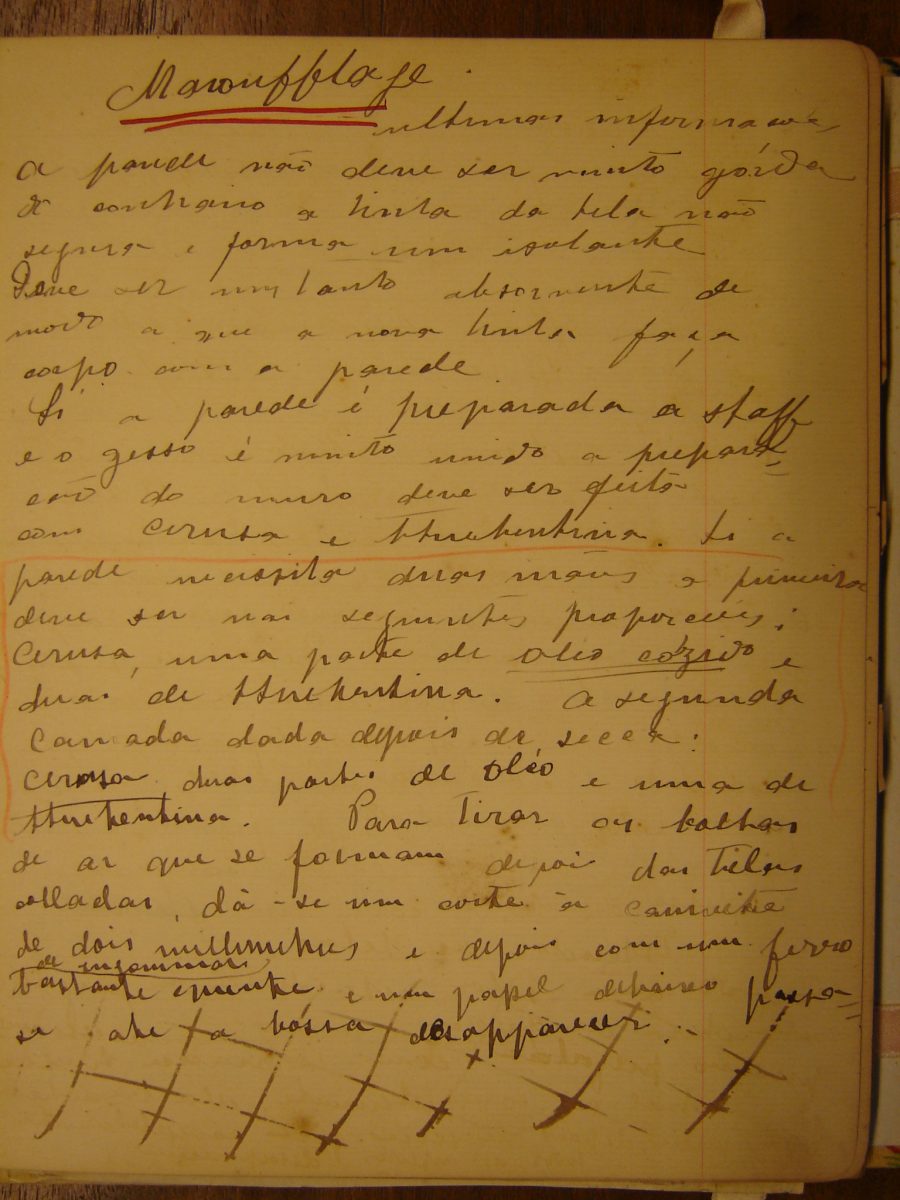 Marouffflage.
ultimas informacoes
a parede não deve ser muito górda
do contrario a tinta da tela não
segura e forma um isolante
Deve ser um tanto absorvente de
modo a que a nova tinta faça
corpo com a parede
Si a parede é preparada a staff
e o gesso é muito unido a prepara=
cão do muro deve ser feita
com cerusa e therebentina. Si a
parede necissita duas mãos a primeira
deve ser nas seguintes proporcões;
Cerusa, uma parte de oleo cózido e
duas de therebentina. A segunda
camada dada depois de secca:
cerusa duas partes de oleo e uma de
therebentina. Para tirar as bolhas
de ar que se formam depois das telas
colladas, dá-se um corte à canivete
de dois millimetros e depois com um ferro
de ingommar
bastante quente e um papel debaixo passa=
se até a bóssa desapparecer.